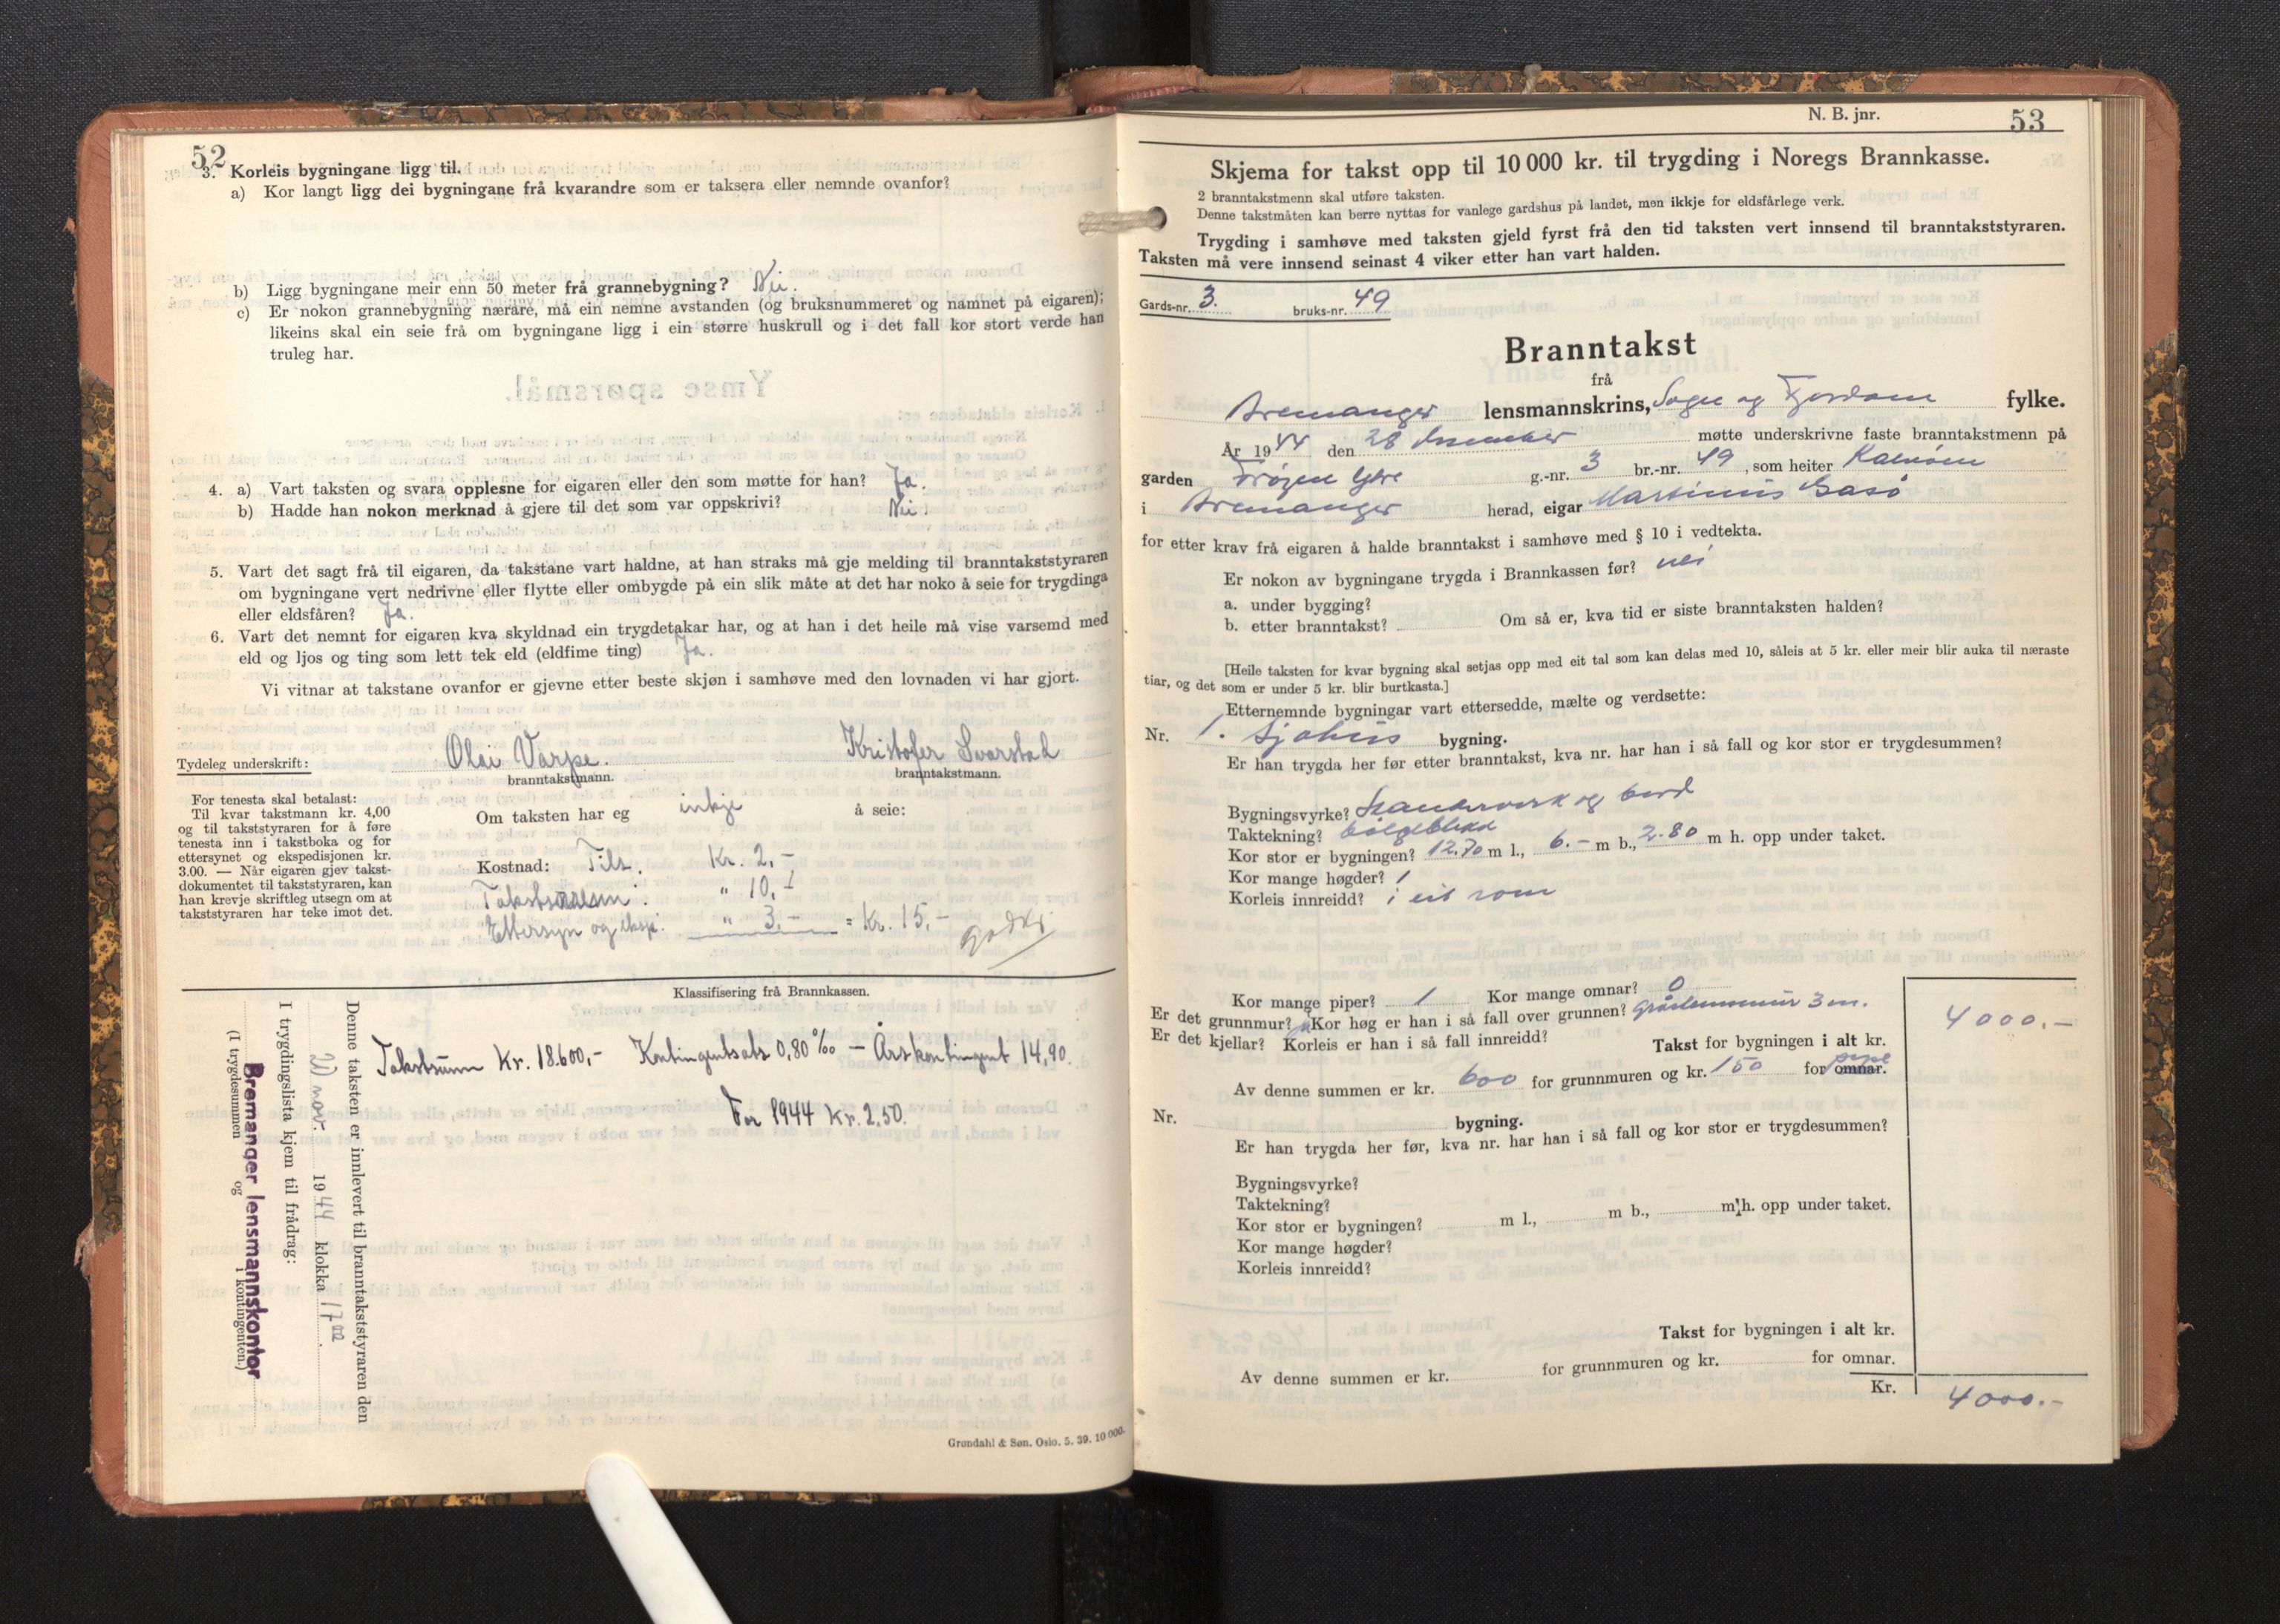 52
3. Korleis bygningane ligg til.
a) Kor langt ligg dei bygningane frå kvarandre som er taksera eller nemnde ovanfor?
b) Ligg bygningane meir enn 50 meter frå grannebygning? Nei.
c) Er nokon grannebygning nærare, må ein nemne avstanden (og bruksnummeret og namnet på eigaren);
likeins skal ein seie frå om bygningane ligg i ein større huskrull og i det fall kor stort verde han
truleg har.
4. a) Vart taksten og svara opplesne for eigaren eller den som møtte for han? Ja.
b) Hadde han nokon merknad å gjere til det som var oppskrivi? Nei.
5. Vart det sagt frå til eigaren, da takstane vart haldne, at han straks må gje melding til branntakststyraren
om bygningane vert nedrivne eller flytte eller ombygde på ein slik måte at det har noko å seie for trygdinga
eller eldsfåren? Ja.
6. Vart det nemnt for eigaren kva skyldnad ein trygdetakar har, og at han i det heile må vise varsemd med
eld og ljos og ting som lett tek eld (eldfime ting) Ja.
Vi vitnar at takstane ovanfor er gjevne etter beste skjøn i samhøve med den lovnaden vi har gjort.
Tydeleg underskrift: Olai Varpe. Kristofer Svarstad
branntakstmann. branntakstmann.
For tenesta skal betalast:
Til kvar takstmann kr. 4,00
og til takststyraren for å føre
tenesta inn i takstboka og for
ettersynet og ekspedisjonen kr.
3.00. — Når eigaren gjev takst-
dokumentet til takststyraren, kan
han krevje skriftleg utsegn om at
takststyraren har teke imot det.
Om taksten har eg inkje å seie:
Kostnad: Tils. Kr. 2,-
" 10,-
Ettersyn og eksp. " 3.- = Kr. 15,-
godkj.
Klassifisering frå Brannkassen.
Takstsum Kr. 18.600,- Kontingentsats 0,80 ‰ — Årskontingent 14,90.
For 1944 Kr. 2,50.
Denne taksten er innlevert til branntakststyraren den
20 nov. 1944 klokka 17 00.
I trygdingslista kjem til frådrag:
Bremanger lensmannskontor
(I trygdesummen og i kontingenten.)
Grøndahl & Søn. Oslo. 5. 39. 10 000.
N. B. jnr. 53
Skjema for takst opp til 10 000 kr. til trygding i Noregs Brannkasse.
2 branntakstmenn skal utføre taksten.
Denne takstmåten kan berre nyttas for vanlege gardshus på landet, men ikkje for eldsfårlege verk.
Trygding i samhøve med taksten gjeld fyrst frå den tid taksten vert innsend til branntakststyraren.
Taksten må vere innsend seinast 4 viker etter han vart halden.
Gards-nr. 3. bruks-nr. 49
Branntakst
frå
Bremanger lensmannskrins, Sogn og Fjordane fylke.
År 1944 den 28 desember møtte underskrivne faste branntakstmenn på
garden Frøyen Ytre g.-nr. 3 br.-nr. 49, som heiter
i Bremanger herad, eigar Martinus Gasø
for etter krav frå eigaren å halde branntakst i samhøve med § 10 i vedtekta.
Er nokon av bygningane trygda i Brannkassen før? nei
a. under bygging?
b. etter branntakst? Om så er, kva tid er siste branntaksten halden?
[Heile taksten for kvar bygning skal setjas opp med eit tal som kan delas med 10, såleis at 5 kr. eller meir blir auka til næraste
tiar, og det som er under 5 kr. blir burtkasta.]
Etternemnde bygningar vart ettersedde, mælte og verdsette:
Nr. 1. Sjøhus bygning.
Er han trygda her før etter branntakst, kva nr. har han i så fall og kor stor er trygdesummen?
Bygningsvyrke? Standerverk og bord
Taktekning? bølgeblekk
Kor stor er bygningen? 12.70 m l., 6.- m b., 2.80 m h. opp under taket.
Kor mange høgder? 1
Korleis innreidd? i eit rom
Kor mange piper? 1 Kor mange omnar? 0
Er det grunnmur? ja Kor høg er han i så fall over grunnen? gråsteinmur 3 m.
Er det kjellar? Korleis er han i så fall innreidd?
Takst for bygningen i alt kr. 4000.-
Av denne summen er kr. 600 for grunnmuren og kr. 150 for omnar. pipe
Nr. bygning.
Er han trygda her før, kva nr. har han i så fall og kor stor er trygdesummen?
Bygningsvyrke?
Taktekning?
Kor stor er bygningen? m l., m b., m h. opp under taket.
Kor mange høgder?
Korleis innreidd?
Takst for bygningen i alt kr.
Av denne summen er kr. for grunnmuren og kr. for omnar.
Kr. 4000.-